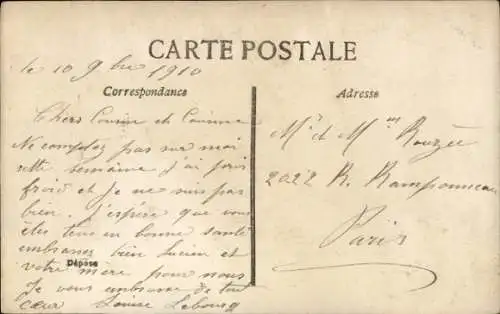 CARTE POSTALE
le 10 9bre 1910
Correspondance
Adresse
Chers Cousin et Cousine
Ne comptez pas sur moi
cette semaine j'ai pris
froid et Je ne suis pas
bien. J'espère que vous
êtes tous en bonne santé
embrassez bien Lucien et
votre mère pour nous
Déposé
Je vous embrasse de tout
cœur Louise Lebourg
Mr et Mme Rouzée
20 22 R. Ramponneau
Paris